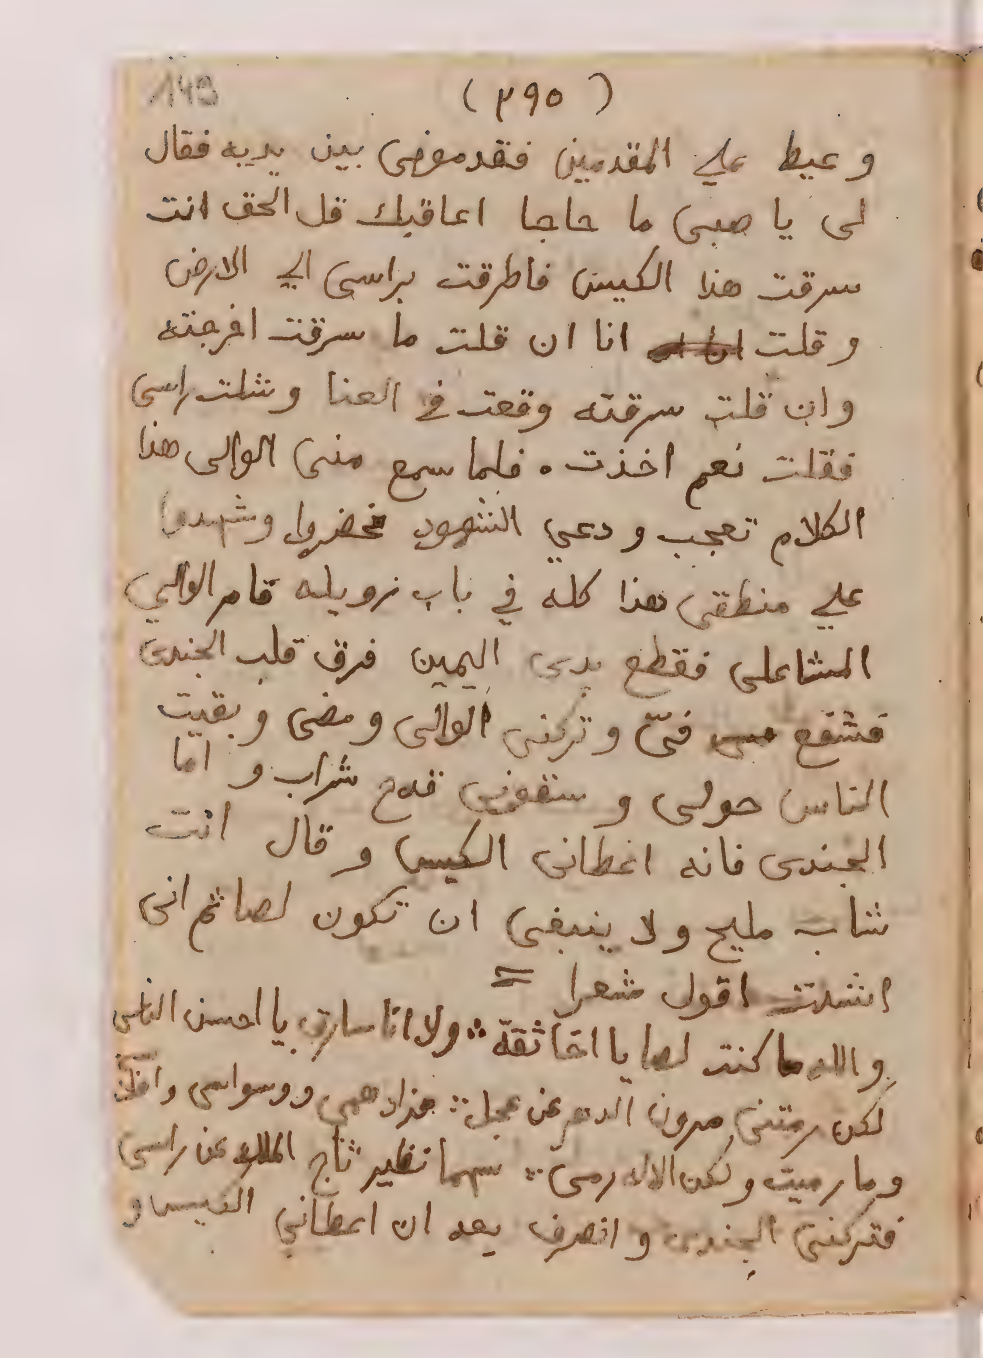 149
(٢٩٥)
وعيط علي المقدمين فقدموني بين يديه فقال
لى يا صبى ما حاجا اعاقبك قل الحق انت
سرقت هذا الكيس فاطرقت براسى الي الارض
وقلت انا ان قلت ما سرقت اخرجته
وان قلت سرقته وقعت في العنا وشلت راسى
فقلت نعم اخذت . فلما سمع منى الوالى هذا
الكلام تعجب ودعي الشهود فحضروا وشهدوا
علي منطقى هذا كله في باب زويله فامر الوالي
المشاعلى فقطع يدى اليمين فرق قلب الجندى
فشفع فىّ وتركنى الوالى ومضى وبقيت
الناس حولى وسقونى قدح شراب واما
الجندى فانه اعطانى الكيس وقال انت
شاب مليح ولا ينبغى ان تكون لصا ثم انى
انشدت اقول شعرا =
والله ما كنت لصا يا اخا ثقة ∴ ولا انا سارق يا احسن الناس
لكن رمتنى صرون الدهر عن عجل ∴ فزاد همى ووسواسى وافلاسى
وما رميت ولكن الاله رمى ∴ سهما نطير تاج الملك عن راسى
فتركنى الجندى وانصرف بعد ان اعطاني الكيس و